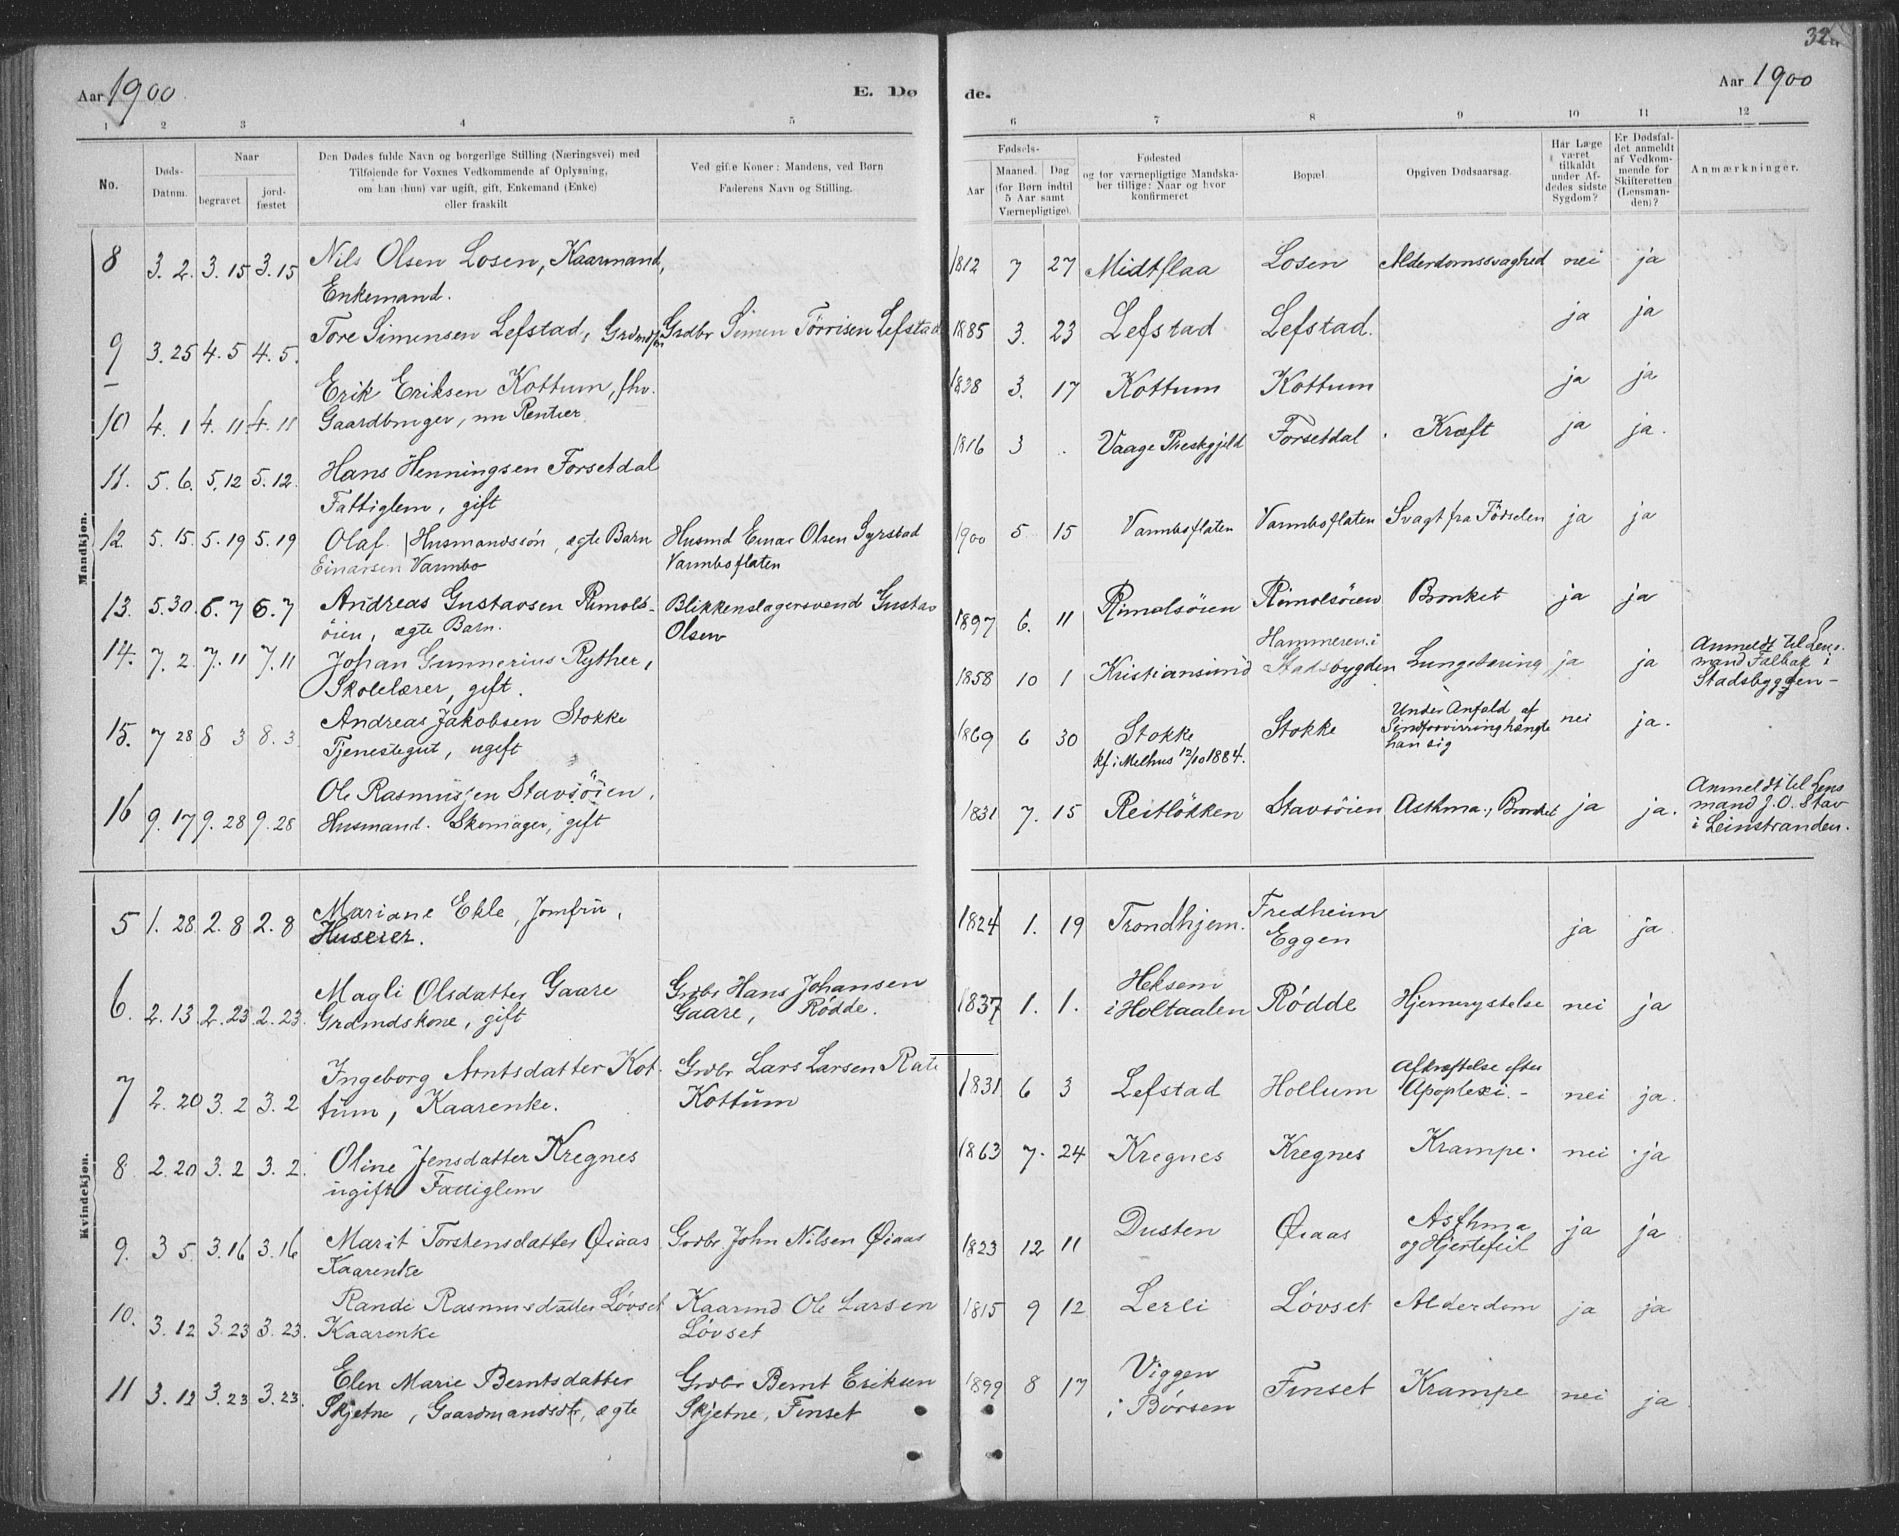 32
Aar 1900 E. Dø de. Aar 1900
1 2 3 4 5 6 7 8 9 10 11 12
No.
Døds-
Datum.
Naar
begravet
jord-
fæstet
Den Dødes fulde Navn og borgerlige Stilling (Næringsvei) med
Tilføiende for Voxnes Vedkommende af Oplysning,
om han (hun) var ugift, gift, Enkemand (Enke)
eller fraskilt
Ved gifte Koner: Mandens, ved Børn
Faderens Navn og Stilling.
Fødsels-
Aar
Maaned. Dag
(for Børn indtil
5 Aar samt
Værnepligtige).
Fødested
og for værnepligtige Mandska-
ber tillige: Naar og hvor
konfirmeret
Bopæl.
Opgiven Dødsaarsag.
Har Læge
været
tilkaldt
under Af-
dedes sidste
Sygdom?
Er Dødsfal-
det anmeldt
af Vedkom-
mende for
Skifteretten
(Lensman-
den)?
Anmærkninger.
Mandkjøn.
8 3. 2. 3. 15 3. 15 Nils Olsen Losen, Kaarmand,
Enkemand.
1812 7 27 Midtflaa Losen Alderdomssvaghed nei ja
9 3. 25 4. 5 4. 5. Tore Simensen Lefstad, Grdmds Grdbr Simen Tørrisen Lefstad
1885 3. 23 Lefstad Lefstad. ja ja
10 4. 1 4. 11 4. 11 Erik Eriksen Kottum, fhv.
Gaardbruger, nu Rentier
1838 3. 17 Kottum Kottum ja ja
11. 5. 6. 5. 12 5. 12. Hans Henningsen Forsetdal
Fattiglem, gift
1816 3 Vaage Prestgjeld Forsetdal Kræft ja ja.
12. 5. 15. 5. 19 5. 19 Olaf | Husmandssøn, ægte Barn Husmd Einar Olsen Syrstad
Einarsen Varmbo Varmboflaten
1900 5 15 Varmboflaten Varmboflaten Svagt fra Fødselen ja ja
13. 5. 30. 6. 7 6. 7 Andreas Gustavsen Rimols- Blikkenslagersvend Gustav
øien, ægte Barn. Olsen
1897 6. 11 Rimolsøien Rimolsøien Bronket ja ja
14. 7. 2. 7. 11 7. 11 Johan Gunnerius Ryther,
Skolelærer, gift.
1858 10 1 Kristiansund Hammeren i
Stadsbygden Lungetæring ja ja Anmeldt til Lens-
mand Falbak i
Stadsbygden -
15. 7 28 8 3 8. 3. Andreas Jakobsen Stokke
Tjenestegut, ugift
1869 6 30 Stokke
kf. i Melhus 12/10 1884. Stokke Under Anfald af
Sindforvirring hængte
han sig nei ja.
16 9. 17 9. 28 9. 28 Ole Rasmussen Stavsøien,
Husmand. Skomager, gift
1831 7. 15 Reitløkken Stavsøien Asthma, Bronket ja ja. Anmeldt til Lens
mand J. O. Stav
i Leinstranden.
Kvindekjøn.
5 1. 28 2. 8 2. 8 Mariane Ekle, Jomfru,
Huseier.
1824 1. 19 Trondhjem. Fredheim
Eggen ja ja.
6. 2. 13. 2. 23 2. 23. Magli Olsdatter Gaare Grdbr Hans Johansen
Grdmdskone, gift Gaare, Rødde.
1837 1. 1. Heksem
i Holtaalen Rødde Hjernerystelse nei ja
7 2. 20 3. 2 3. 2 Ingeborg Arntsdatter Kot- Grdbr Lars Larsen
tum, Kaarenke. Kottum
1831 6 3 Lefstad Hollum Afkræftelse efter
Apoplexi. - nei ja.
8 2. 20 3. 2 3. 2. Oline Jensdatter Kregnes
ugift Fattiglem
1863 7. 24 Kregnes Kregnes Krampe. nei ja
9. 3 5. 3. 16 3. 16 Marit Torstensdatter Øiaas Grdbr. John Nilsen Øiaas
Kaarenke
1823 12 11 Dusten Øiaas Asthma
og Hjertefeil ja ja
10. 3. 12 3. 23 3. 23. Randi Rasmusdatter Løvset Kaarmd Ole Larsen
Kaarenke Løvset
1815 9 12 Lerli Løvset Alderdom ja ja
11 3. 12 3. 23 3. 23. Elen Marie Berntsdatter Grdbr Bernt Eriksen
Skjetne, Gaardmandsdtr, ægte Skjetne, Finset
1899 8 17 Viggen
i Børsen Finset Krampe nei ja